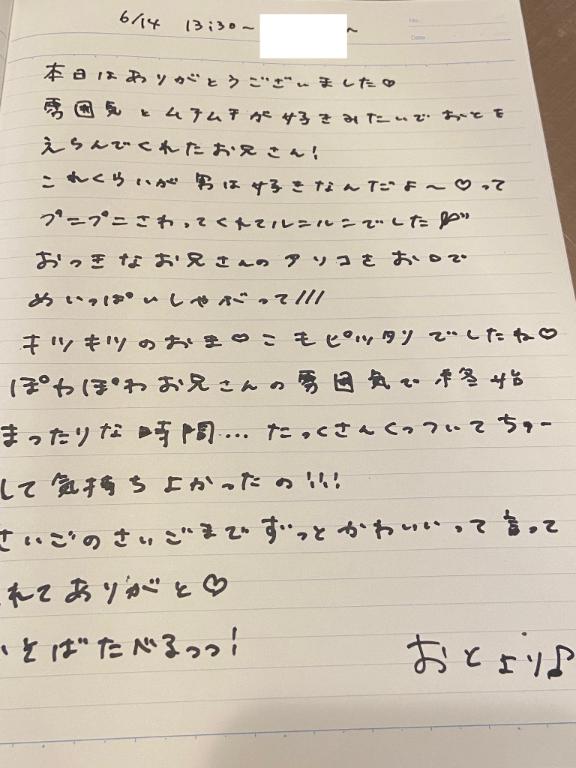 6/14 13:30~ ~
No.
Date
本日はありがとうございました♡
雰囲気とムチムチが好きみたいでおとを
えらんでくれたお兄さん!
これくらいが男は好きなんだよ~♡って
プニプニさわってくれてルンルンでした♡
おっきなお兄さんのアソコをお口で
めいっぱいしゃぶって!!!
キツキツのおま♡こもピッタリでしたね♡
ぽわぽわお兄さんの雰囲気で終始
まったりな時間...たっくさんくっついてちゅー
して気持ちよかったの!!!
さいごのさいごまでずっとかわいいって言って
れてありがと♡
そばたべるっっ!
おとより♪